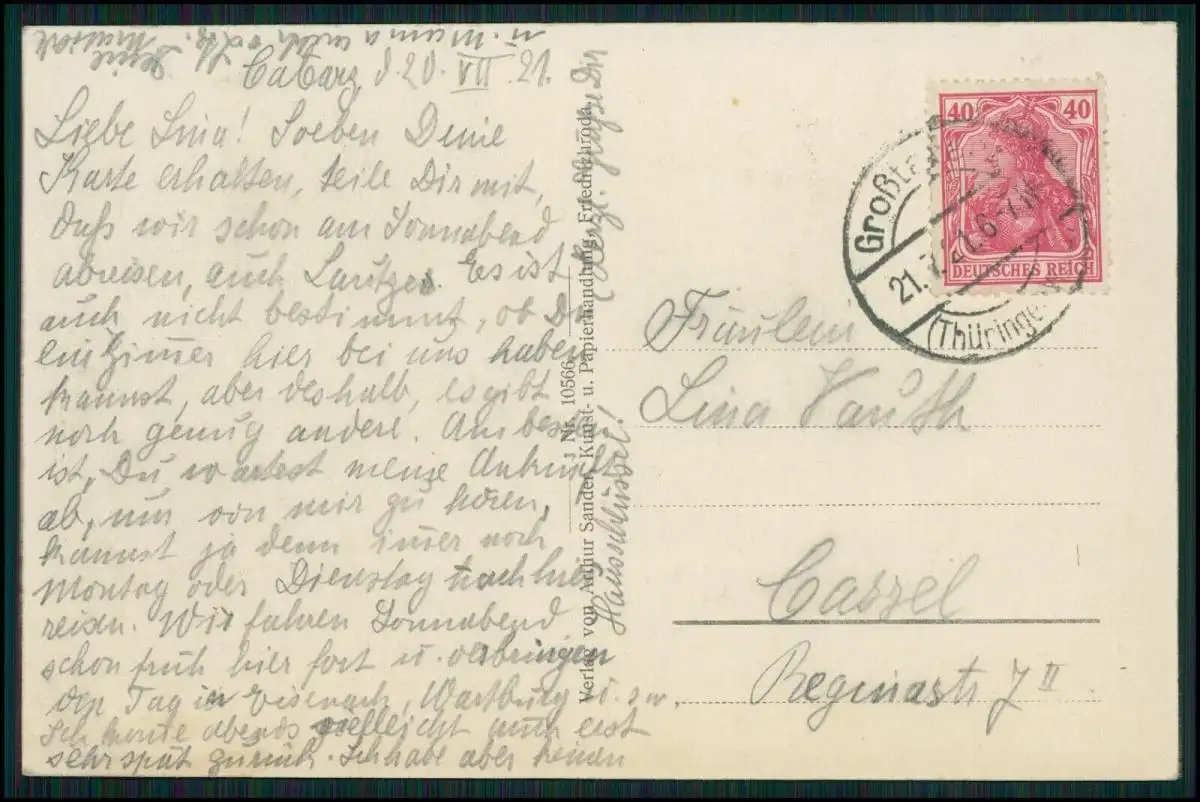 Cabarz, d. 20. VII 21.
Liebe Lina! Soeben Deine
Karte erhalten, teile Dir mit,
daß wir schon am Sonnabend
abreisen, auch Lautzes. Es ist
auch nicht bestimmt, ob Du
ein Zimer hier bei uns haben
kannst, aber deshalb, es gibt
noch genug andere. Am besten
ist, Du wartest meine Ankunft
ab, um von mir zu hören,
kannst ja denn imer noch
Montag oder Dienstag nach hier
reisen. Wir fahren Sonnabend
schon früh hier fort u. verbringen
den Tag in Eisenach, Wartburg u.s.w.
Ich könnte abends vielleicht auch erst
sehr spät zurück. Ich habe aber keinen
Hausschlüssel! Herzl. Grüße Dir
u. Mama
Verlag von Arthur Sander, Kunst- u. Papierhandlung, Friedrichroda.
Nr. 10566
40 40
DEUTSCHES REICH
Großta
21.7.21.6-7
(Thüringe
Fräulein
Lina Vauth
Cassel
Reginastr 7 II